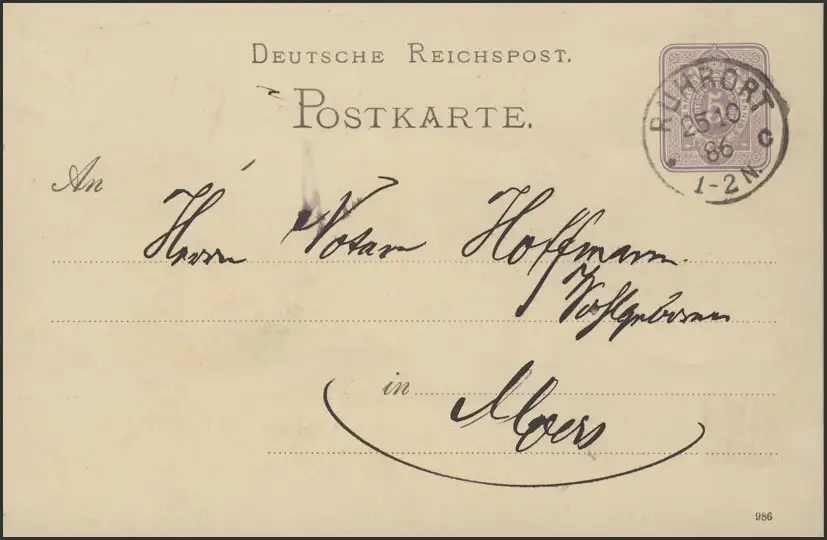 DEUTSCHE REICHSPOST.
POSTKARTE.
RUHRORT
25 10
86
1-2 N.
C
5
An
Herrn Notar Hoffmann
Wohlgeboren
in
Moers
986